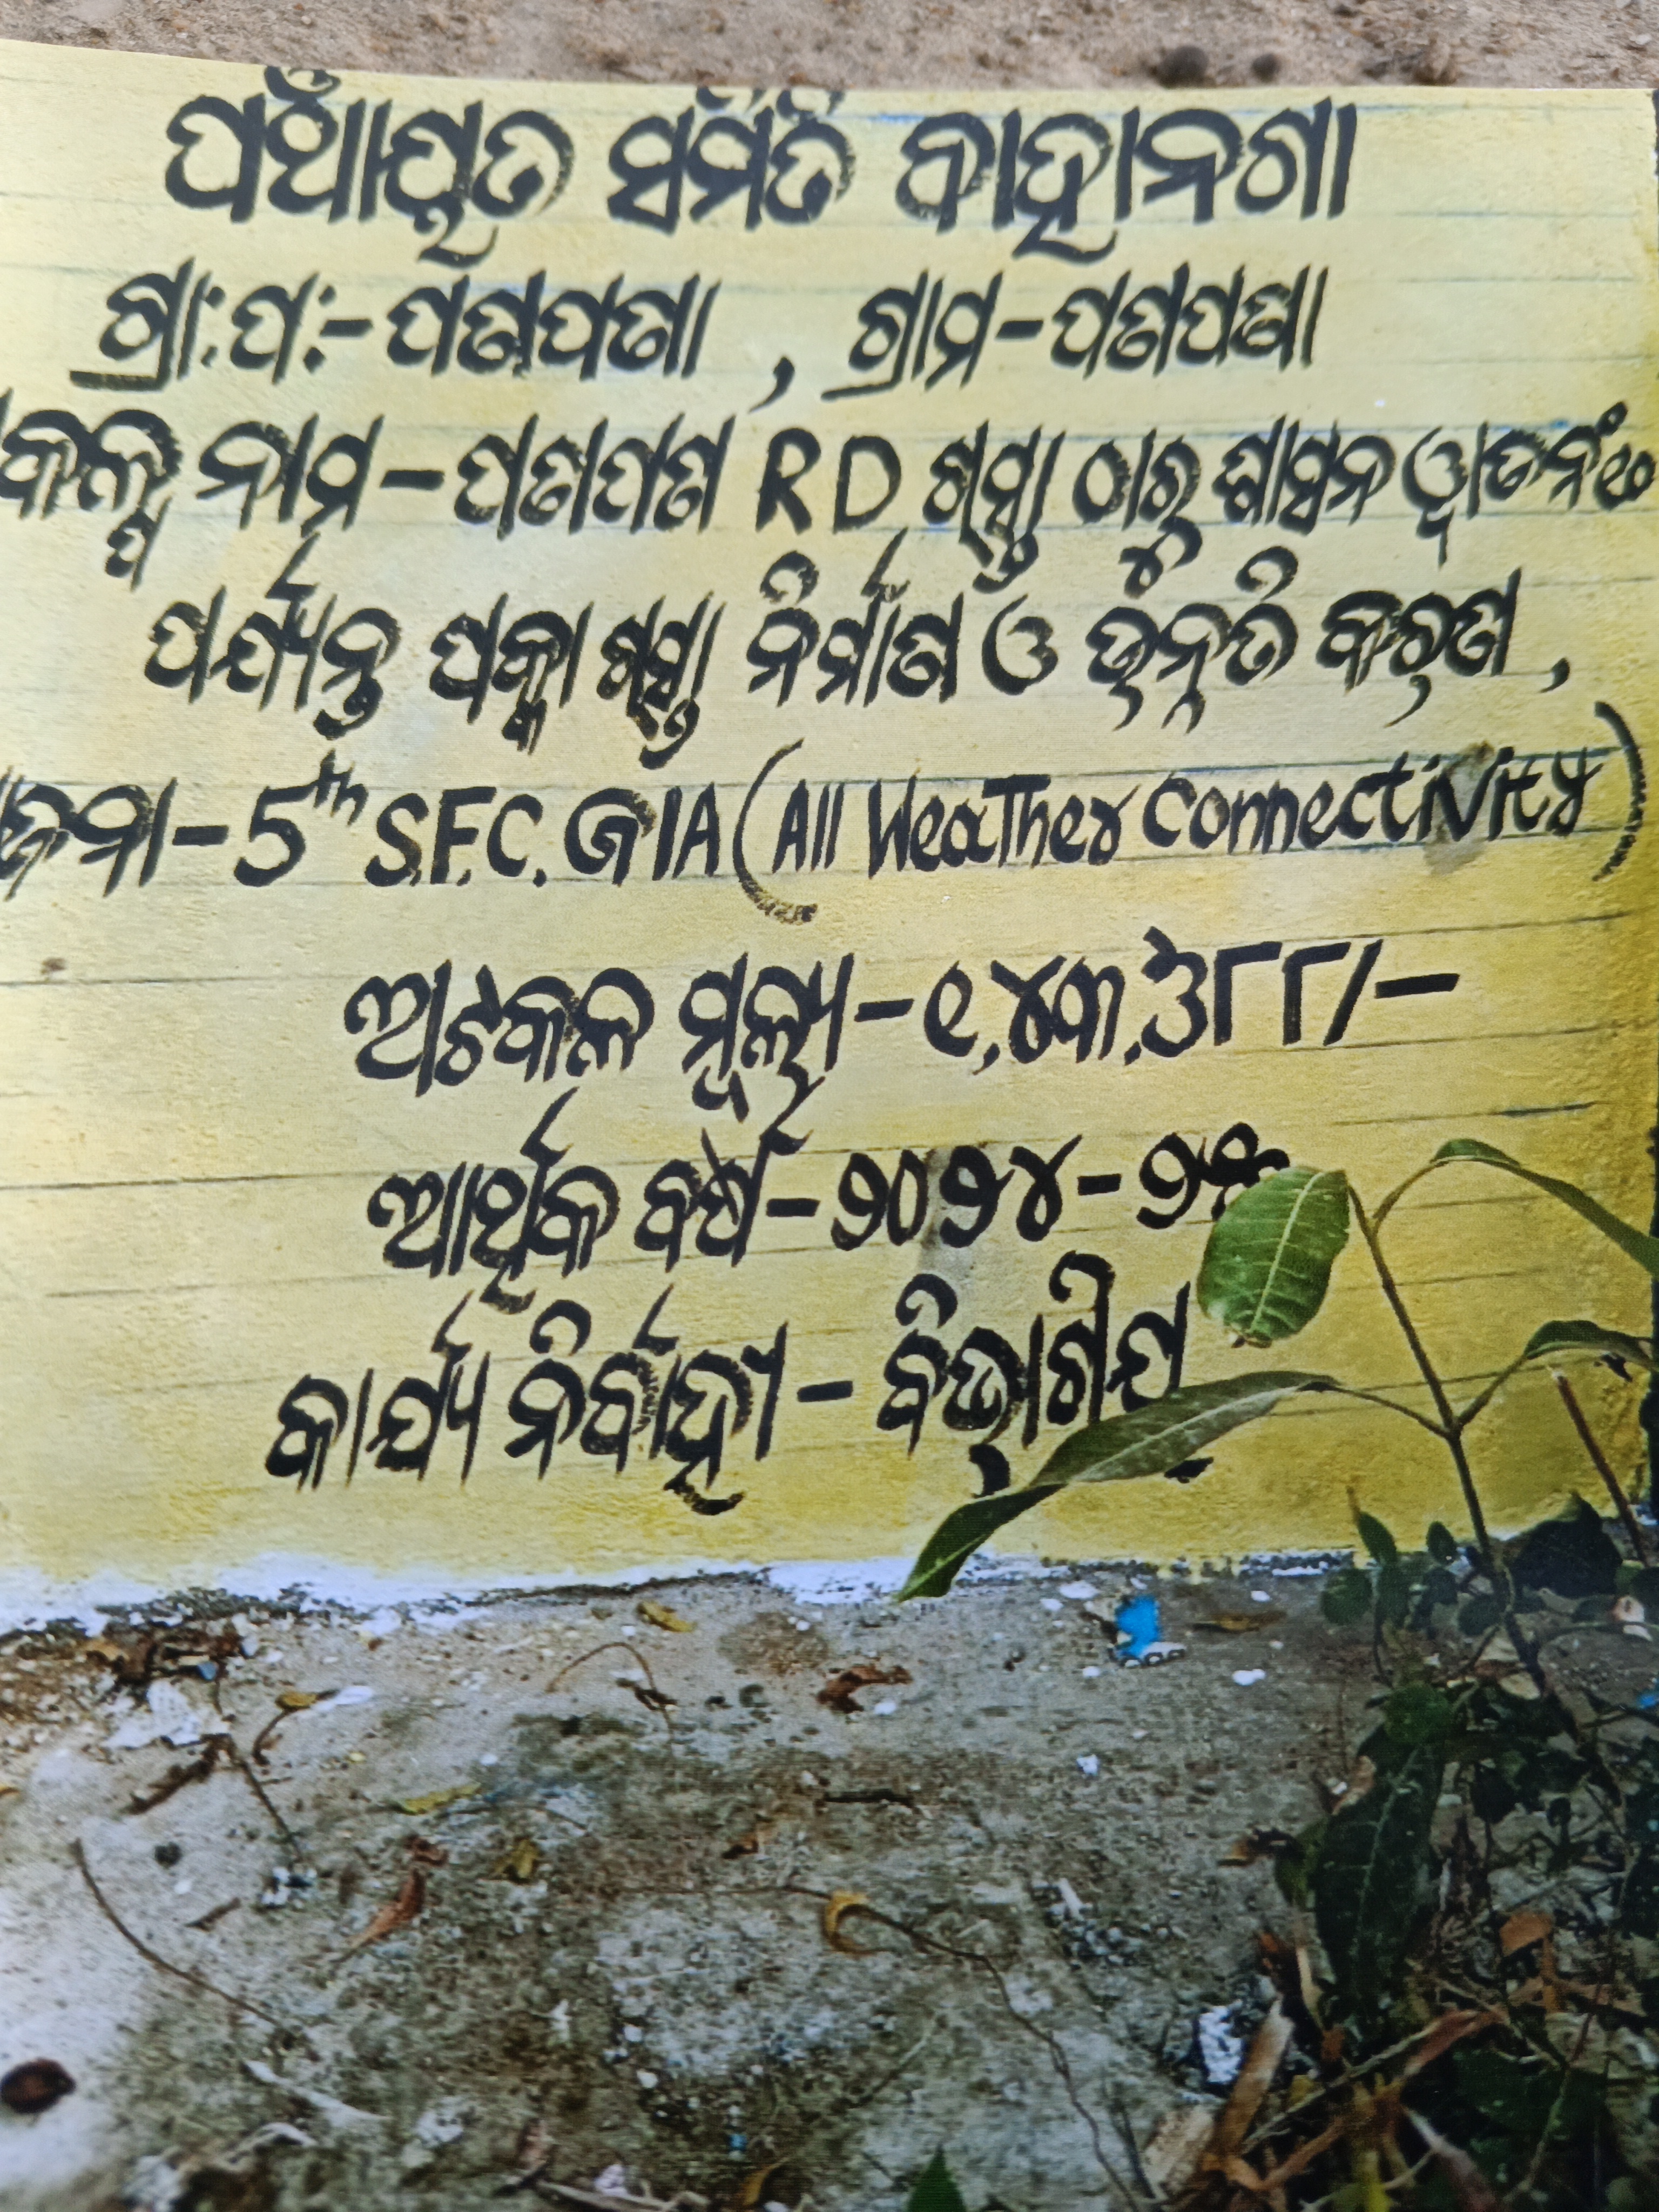 ପଞ୍ଚାୟତ ସମିତି କାହାନଗା
ଗ୍ରା:ପ:-ପଣପଣା , ଗ୍ରାମ-ପଣପଣା
କଳ୍ପ ନାମ-ପଣପଣା RD ରାସ୍ତା ଠାରୁ ଶାସନ ୱାଡନଂ୧୦
ପର୍ଯ୍ୟନ୍ତ ପକ୍କା ରାସ୍ତା ନିର୍ମାଣ ଓ ଉନ୍ନତି କରଣ ,
ଜନା-5th S.F.C. GIA (All Weather Connectivity)
ଅଟକଳ ମୂଲ୍ୟ-୧,୪୩.୬୮୮/-
ଆର୍ଥିକ ବର୍ଷ-୨୦୨୪-୨୫
କାର୍ଯ୍ୟ ନିର୍ବାହୀ - ବିଭାଗୀୟ